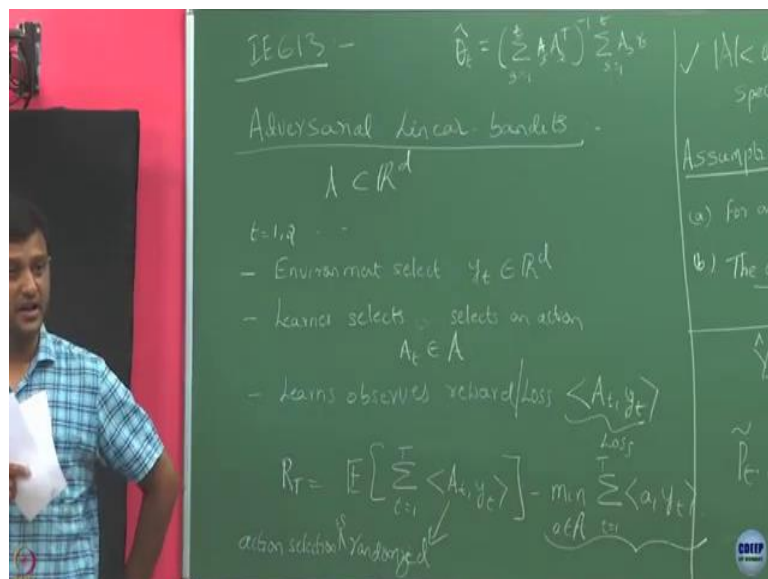 IE613 :-
θ̂_t = (Σ_{s=1}^{t} A_s A_s^T)^{-1} Σ_{s=1}^{t} A_s
Adversarial Linear bandits
A ⊂ ℝ^d
t=1,2 . .
- Environmat select y_t ∈ ℝ^d
- Learner selects selects an action
A_t ∈ A
- Learns observes reward/Loss <A_t, y_t>
Loss
R_T = E[Σ_{t=1}^{T} <A_t, y_t>] - min_{a∈A} Σ_{t=1}^{T} <a, y_t>
action selection is randomized
✓ |A| <
Spec
Assumpt
(a) For a
(b) The
Ŷ
P̃_t
CDEEP
IIT BOMBAY